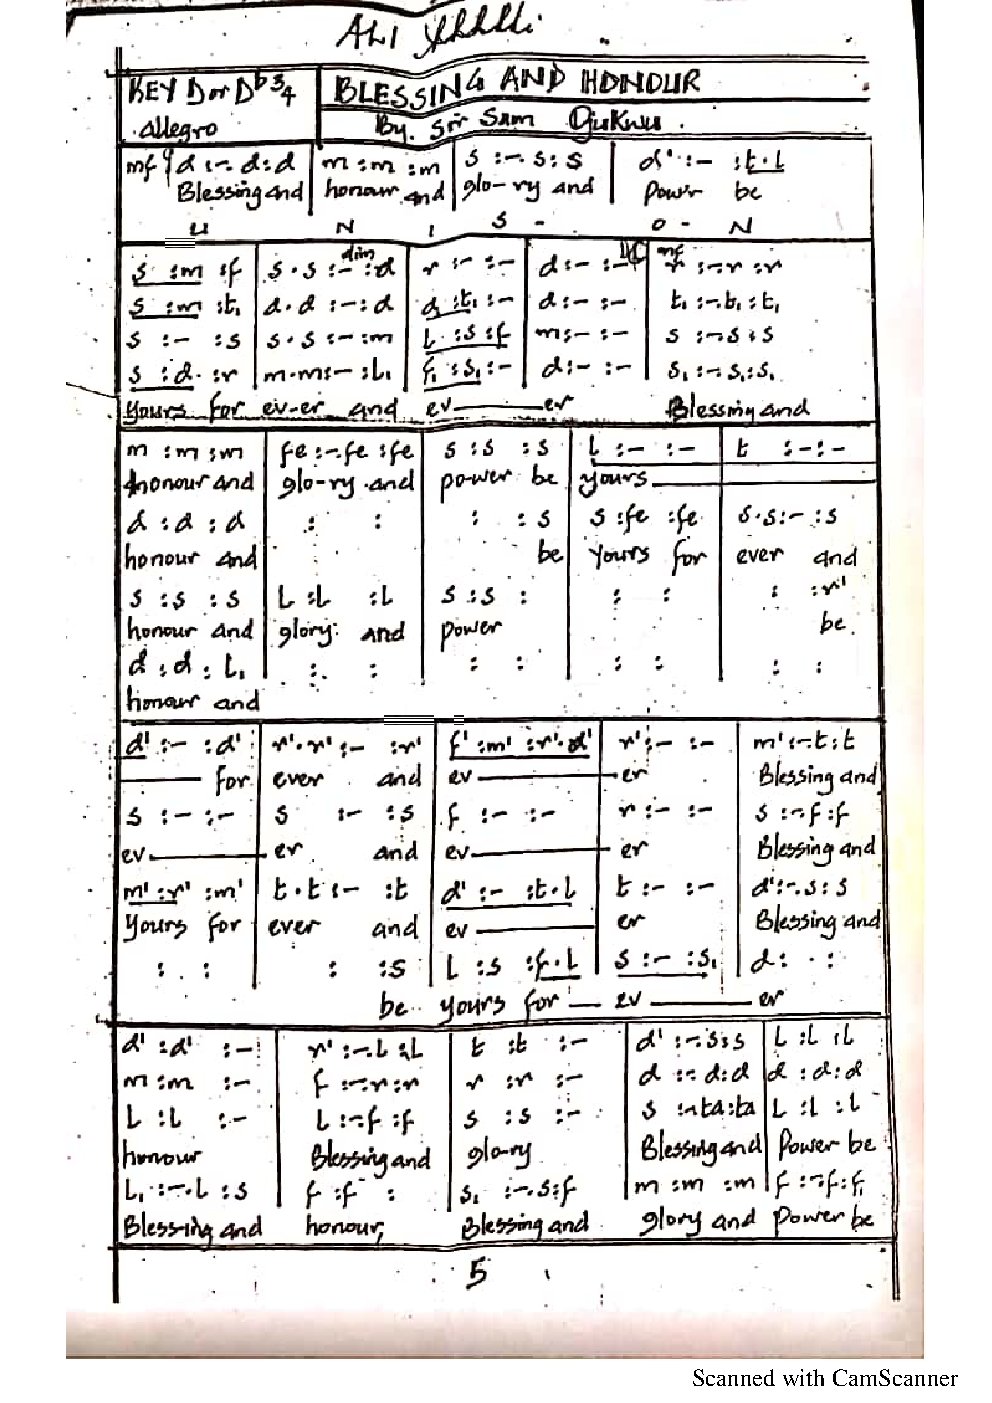 ALI
KEY D or Db 3/4
BLESSING AND HONOUR
Allegro
By. Sir Sam Ojukwu.
mf { d :-. d : d | m : m : m | s :-. s : s | d' :- : t . l
Blessing and honour and glo-ry and Power be
U N I S - O - N
dim DC mf
s : m : f | s . s :- : d | r :- :- | d :- :- | r :-. r : r
s : m : t₁ | d . d :- : d | d : t₁ :- | d :- :- | t₁ :-. t₁ : t₁
s :- : s | s . s :- : m | l . : s : f | m :- :- | s :-. s : s
s : d . : r | m . m :- : l₁ | f₁ : s₁ :- | d :- :- | s₁ :-. s₁ : s₁
Yours for ev-er and ev er Blessing and
m : m : m | fe :-. fe : fe | s : s : s | l :- :- | t :- :-
honour and glo-ry and power be yours
d : d : d | : : | : : s | s : fe : fe | s . s :- : s
honour and be Yours for ever and
s : s : s | l : l : l | s : s : | : : | : : r'
honour and glory and power be.
d : d : l₁ | : : | : : | : : | : :
honour and
d' :- : d' | r' . r' :- : r' | f' : m' : r' . d' | r' :- :- | m' :-. t : t
for ever and ev er Blessing and
s :- :- | s :- : s | f :- :- | r :- :- | s :-. f : f
ev er and ev er Blessing and
m' : r' : m' | t . t :- : t | d' :- : t . l | t :- :- | d' :-. s : s
Yours for ever and ev er Blessing and
: : | : : s | l : s : f . l | s :- : s₁ | d : :
be yours for ev er
d' : d' :- | r' :-. l : l | t : t :- | d' :-. s : s | l : l : l
m : m :- | f :-. r : r | r : r :- | d :-. d : d | d : d : d
l : l :- | l :-. f : f | s : s :- | s :-. ta : ta | l : l : l
honour Blessing and glo-ry Blessing and Power be
l₁ :-. l : s | f : f : | s₁ :-. s : f | m : m : m | f :-. f : f₁
Blessing and honour, Blessing and glory and Power be
5
Scanned with CamScanner